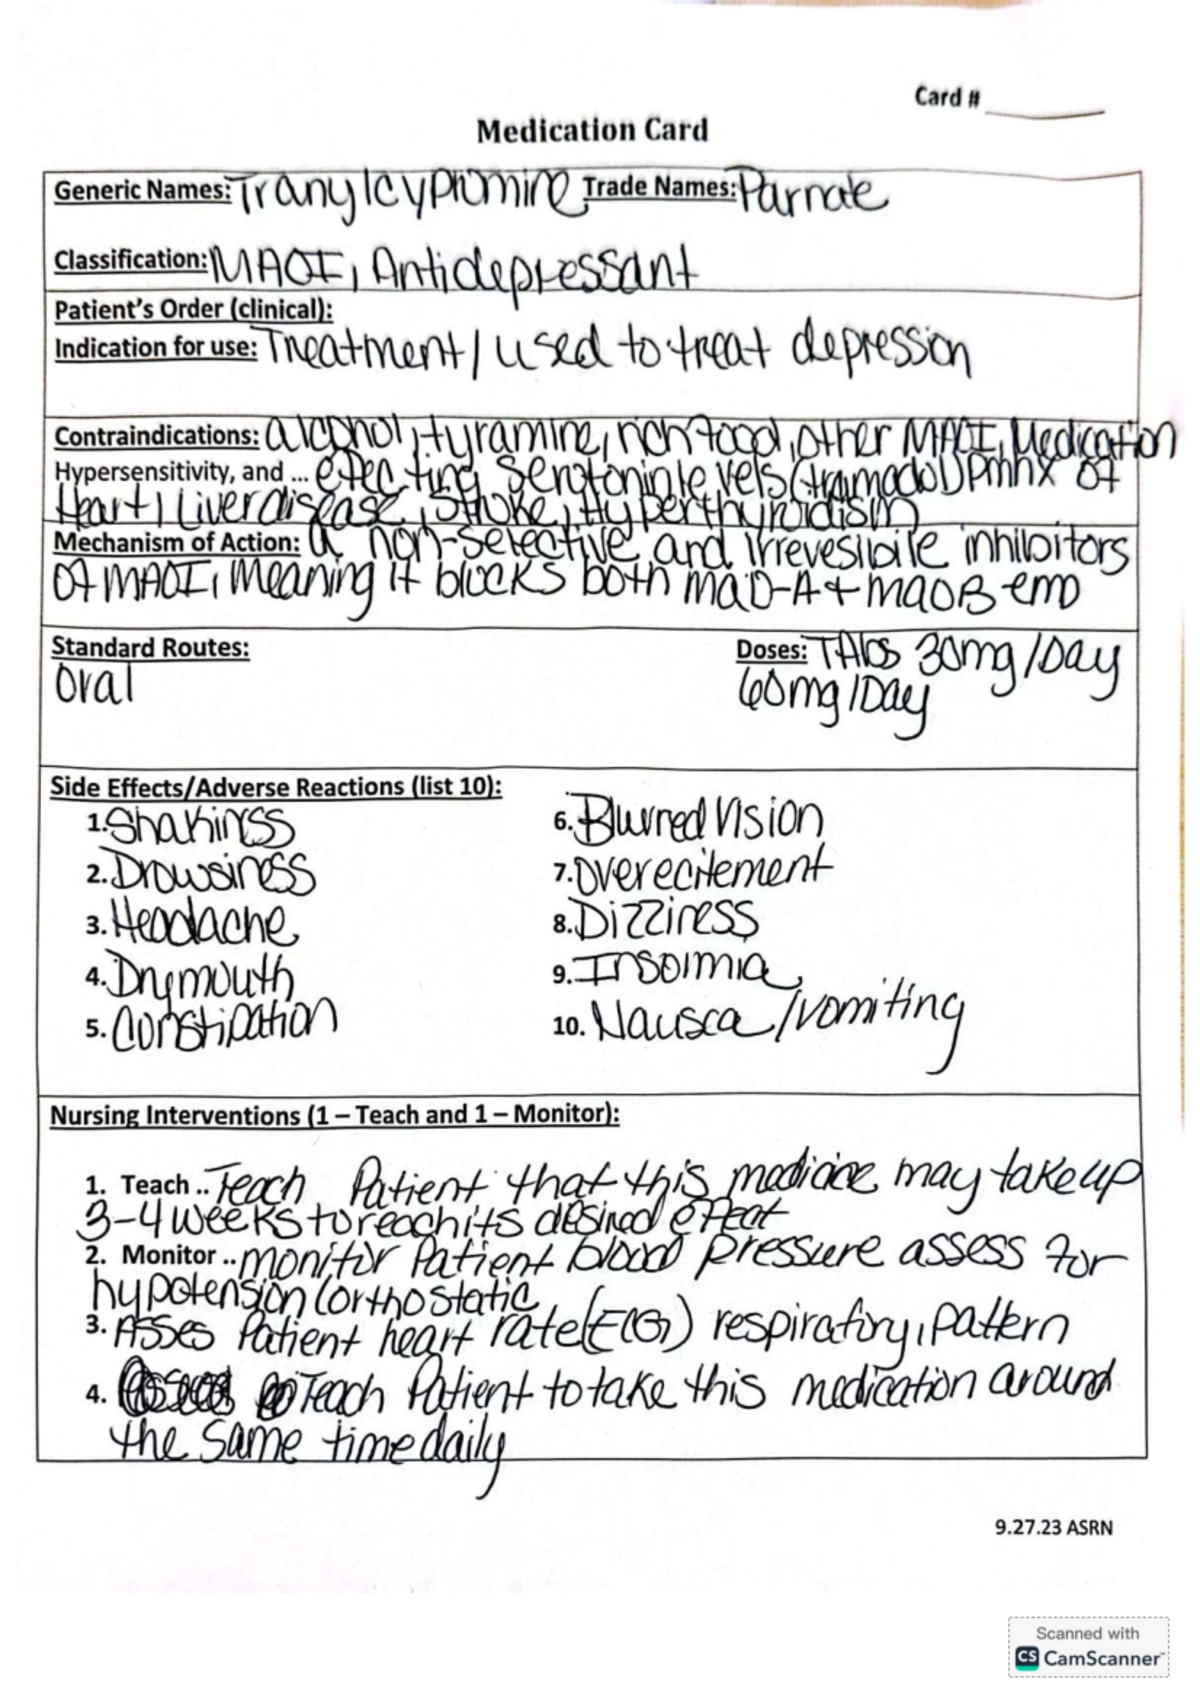 Card # ______
Medication Card
Generic Names: Tranylcypromine Trade Names: Parnate
Classification: MAOI, Antidepressant
Patient's Order (clinical):
Indication for use: Treatment / used to treat depression
Contraindications: alcohol, tyramine, rich food, other MAOI, Medication
Hypersensitivity, and ... effecting serotonin levels (tramadol) pmhx of
Heart / Liver disease, Stroke, Hyperthyroidism
Mechanism of Action: a non-selective and irrevesibile inhibitors
of MAOI, Meaning it blocks both MAO-A + MAOB
Standard Routes: Doses: TAbs 30mg /Day
Oral 60mg /Day
Side Effects/Adverse Reactions (list 10):
1. Shakinss 6. Blurred Vision
2. Drowsiness 7. Overecitement
3. Headache 8. Dizziness
4. Drymouth 9. Insomia
5. Constipation 10. Nausea /vomiting
Nursing Interventions (1 – Teach and 1 – Monitor):
1. Teach .. Teach Patient that this medicine may take up
3-4 weeks to reach its desired effect
2. Monitor .. monitor Patient blood pressure assess for
hypotension (orthostatic
3. Asses Patient heart rate (ECG) respiratory, pattern
4. Teach Patient to take this medication around
the same time daily
9.27.23 ASRN
Scanned with
CS CamScanner